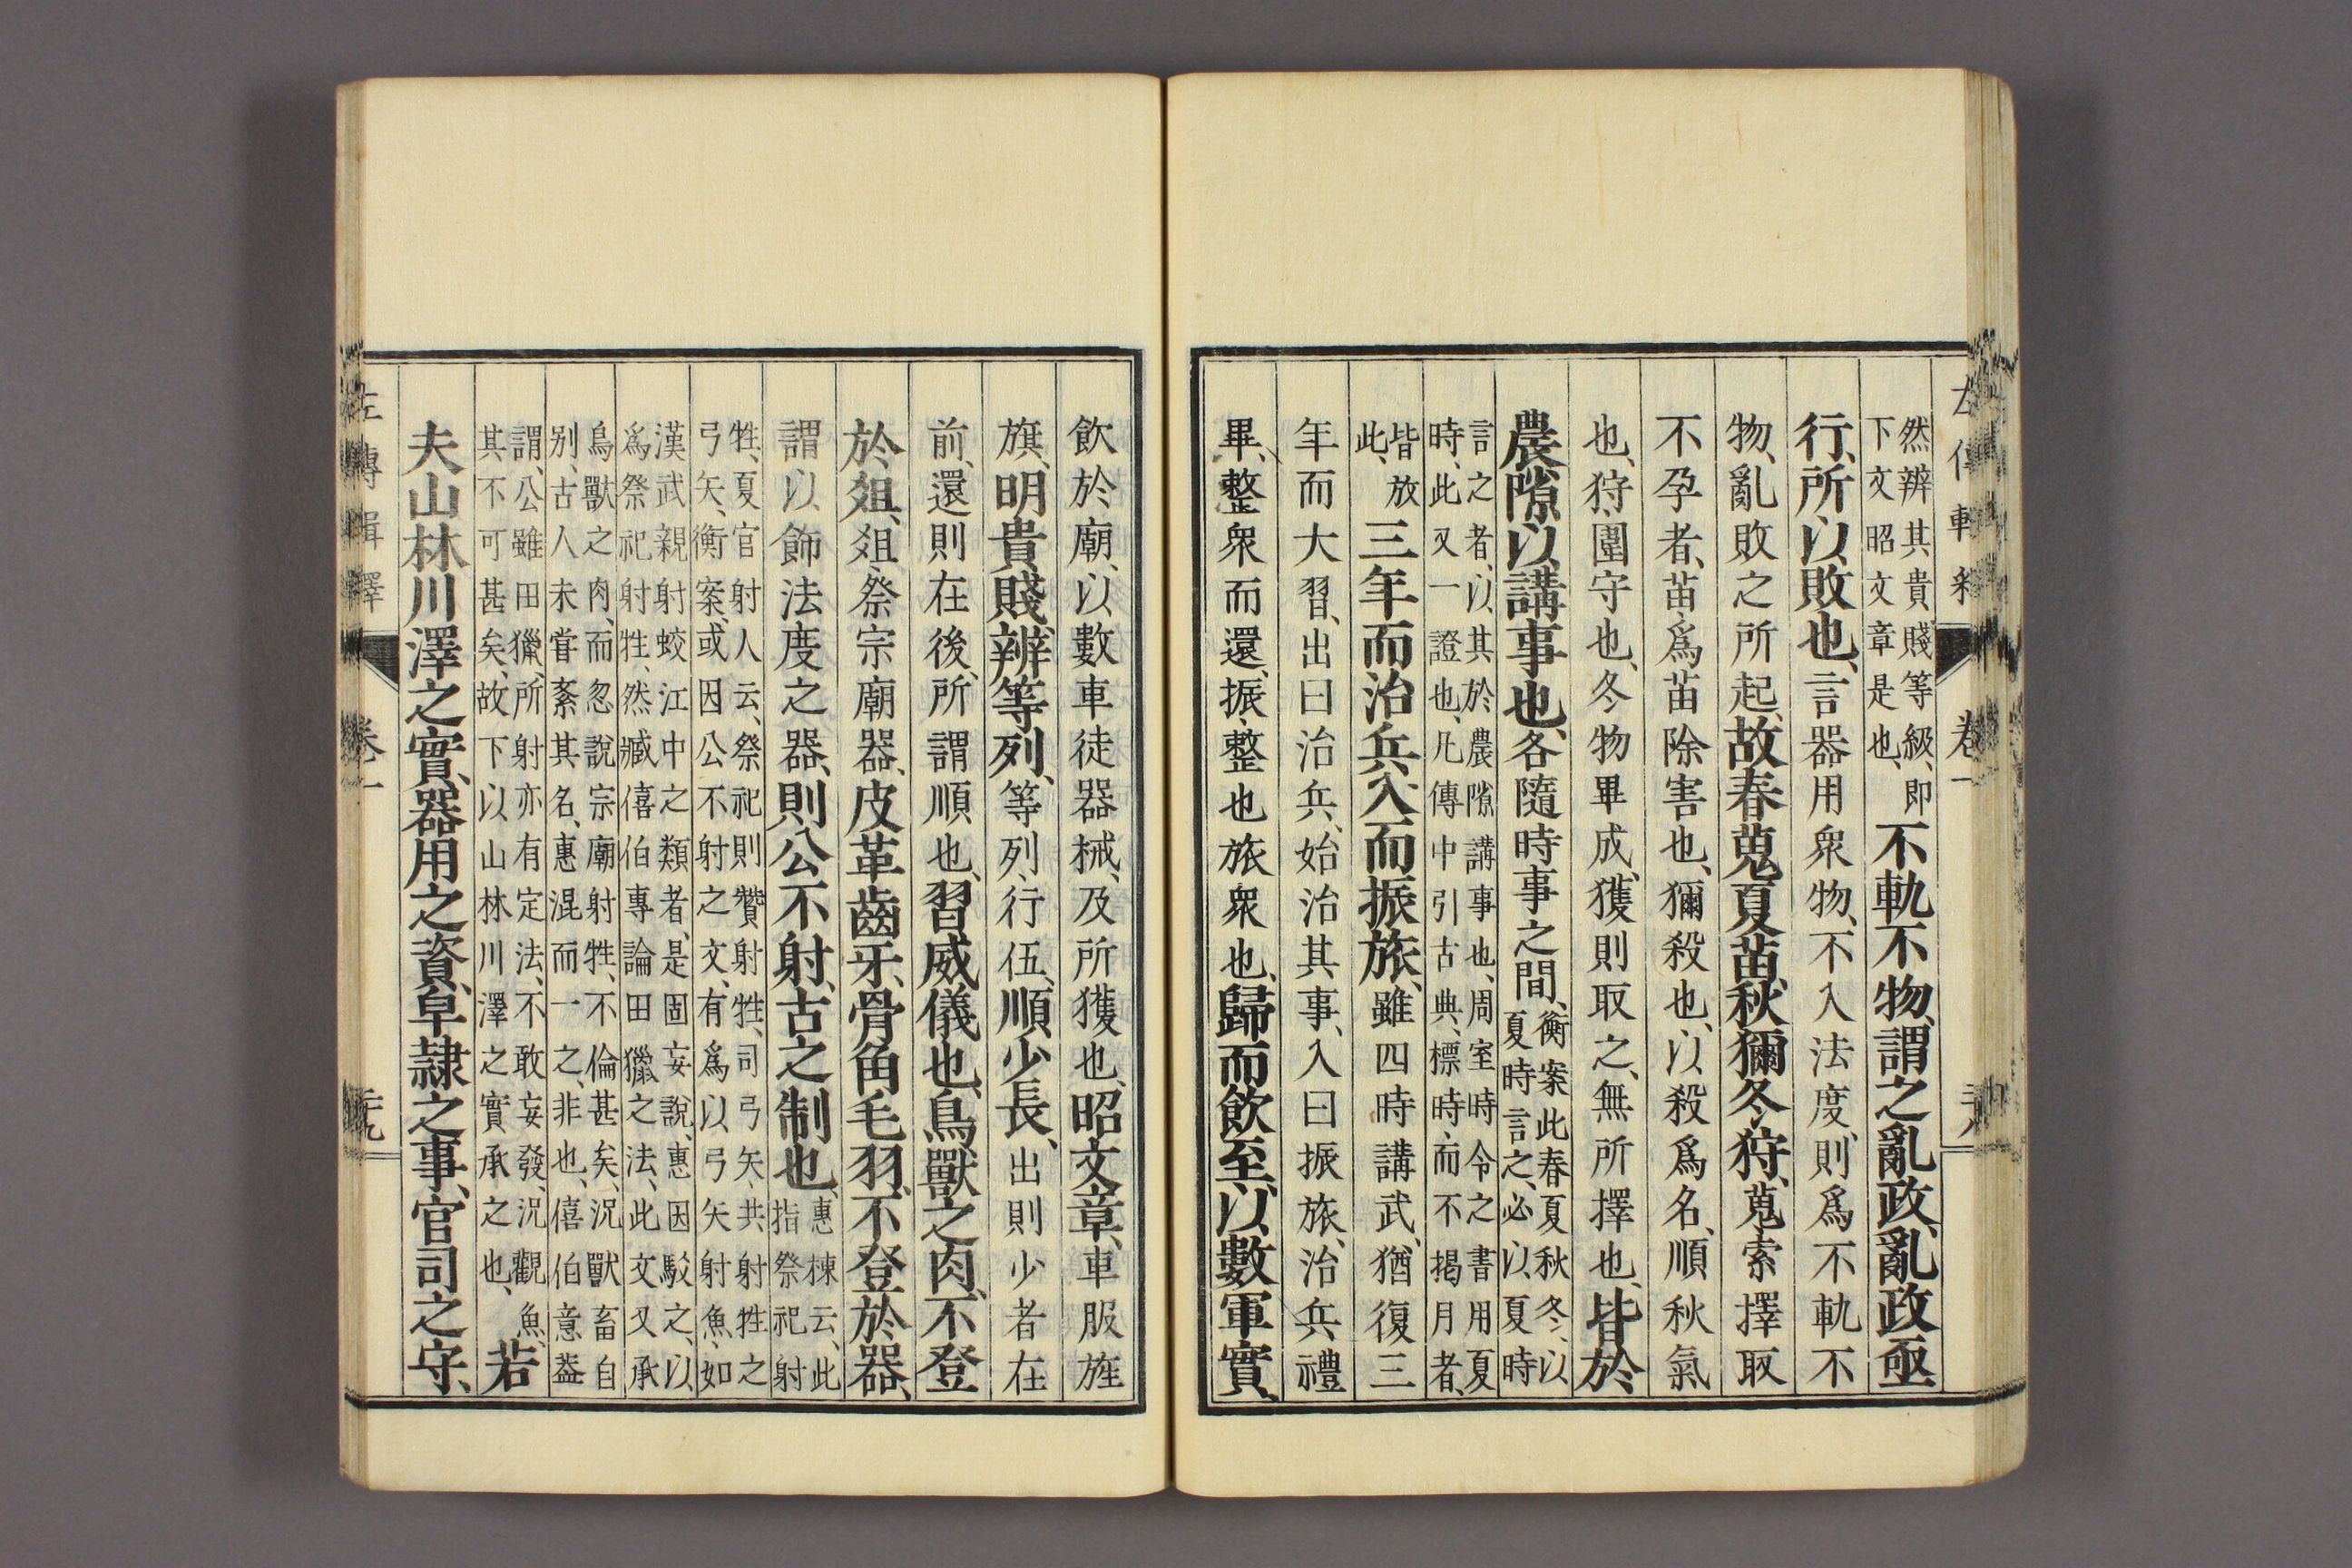 然辨其貴賤等級、即
下文昭文章是也、
不軌不物、謂之亂政、亂政亟
行、所以敗也、言器用衆物、不入法度、則爲不軌不
物、亂敗之所起、故春蒐夏苗、秋獮冬狩、蒐索擇取
不孕者、苗爲苗除害也、獮殺也、以殺爲名、順秋氣
也、狩圍守也、冬物畢成、獲則取之、無所擇也、皆於
農隙以講事也、各隨時事之間、
衡案此春夏秋冬、以
夏時言之、必以夏時
言之者、以其於農隙講事也、周室時令之書用夏
時、此又一證也、凡傳中引古典、標時、而不掲月者、
皆放
此、
三年而治兵、入而振旅、雖四時講武、猶復三
年而大習、出曰治兵、始治其事、入曰振旅、治兵、禮
畢、整衆而還、振整也旅衆也、歸而飲至、以數軍實、
飲於廟、以數車徒器械、及所獲也、昭文章、車服旌
旗、明貴賤、辨等列、等列、行伍、順少長、出則少者在
前、還則在後、所謂順也、習威儀也、鳥獸之肉、不登
於俎、俎、祭宗廟器、皮革齒牙、骨角毛羽、不登於器、
謂以飾法度之器、則公不射、古之制也、
惠棟云、此
指祭祀射
牲、夏官射人云、祭祀則贊射牲、司弓矢、共射牲之
弓矢、衡案、或因公不射之文、有爲以弓矢射魚、如
漢武親射蛟江中之類者、是固妄說、惠因駁之、以
爲祭祀射牲、然臧僖伯專論田獵之法、此文又承
鳥獸之肉、而忽說宗廟射牲、不倫甚矣、況獸畜自
別、古人未嘗紊其名、惠混而一之、非也、僖伯意葢
謂、公雖田獵、所射亦有定法、不敢妄發、況觀魚、
其不可甚矣、故下以山林川澤之實承之也、
若
夫山林川澤之實、器用之資、皁隸之事、官司之守、
左傳輯釋
卷一
二十九